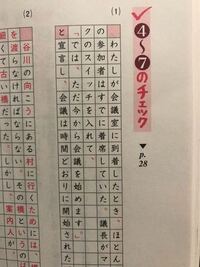 4〜7のチェック
▼p.28
(1)
わたしが会議室に到着したとき、ほとん
の参加者はすでに着席していた。議長がマ
クのスイッチを入れて、
「では、ただ今から会議を始めます。」
と宣言し、会議は時間どおりに開始された
(2)
谷川の向こうにある村に行くためには、
を渡らなければならない。その橋
細くて古い橋だった。しかし、案内人が